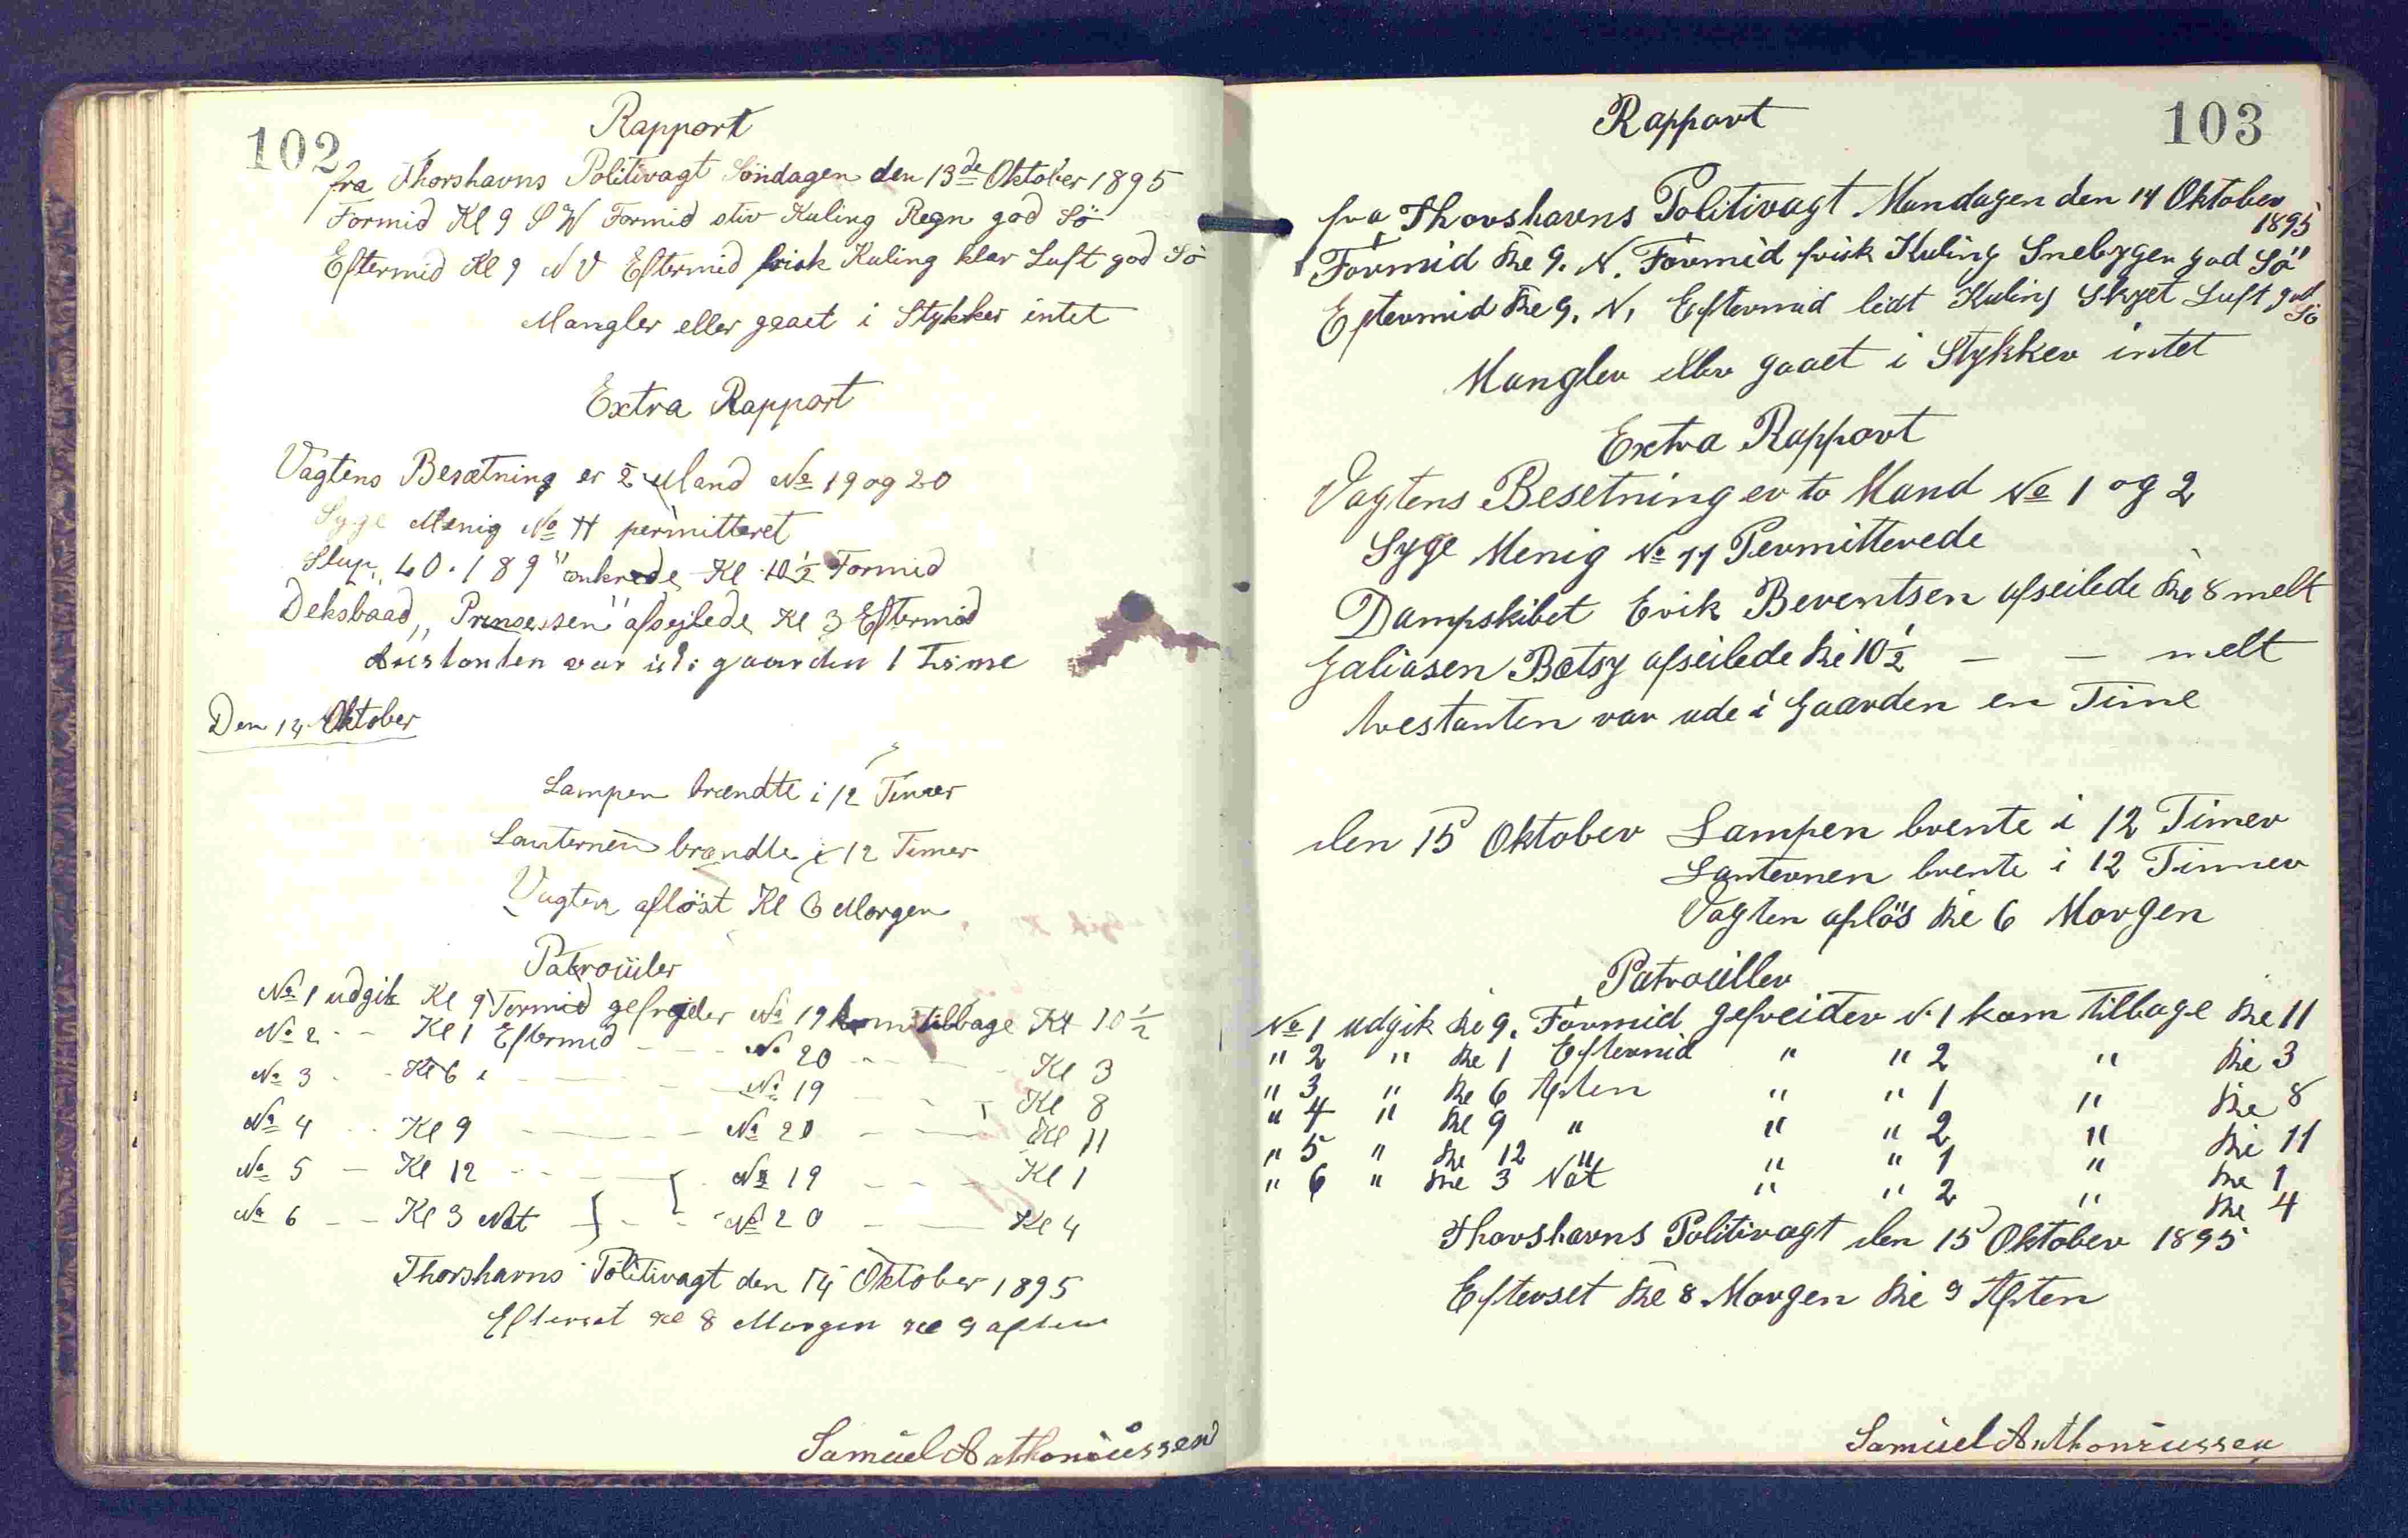 102
Rapport
fra Thorshavns Politivagt Söndagen den 13de Oktober 1895
Formid Kl 9 S W Formid stiv Kuling Regn god Sö
Eftermid Kl 9 N V Eftermid frisk Kuling klar Luft god Sö
Mangler eller gaaet i Stykker intet
Extra Rapport
Vagtens Besætning er 2 Mand No 19 og 20
Syge Menig No 11 permitteret
Slup "40.189" ankrede Kl 10 1/2 Formid
Deksbaad "Prinsessen" afsejlede Kl 3 Eftermid
Arestanten var ude i gaarden 1 Time
Den 14 Oktober
Lampen brændte i 12 Timer
Lanternen brændte i 12 Timer
Vagten aflöst Kl 6 Morgen
Patrouiler
No 1 udgik Kl 9 Formid gefrejder No 19 kom tilbage Kl 10 1/2
No 2 - - Kl 1 Eftermid - - - No 20 - - - Kl 3
No 3 - - Kl 6 - - - No 19 - - - Kl 8
No 4 - - Kl 9 - - - No 20 - - Kl 11
No 5 - Kl 12 - - - No 19 - - - Kl 1
No 6 - - Kl 3 Nat } - - No 20 - - Kl 4
Thorshavns Politivagt den 14 Oktober 1895
Efterset Kl 8 Morgen Kl 9 aften
Samuel Anthoniussen
103
Rapport
fra Thorshavns Politivagt Mandagen den 14 Oktober
1895
Formid Kl 9. N. Formid frisk Kuling Snebyger god Sö
Eftermid Kl 9. N, Eftermid lidt Kuling Skyet Luft god
Sö
Mangler eller gaaet i Stykker intet
Extra Rapport
Vagtens Besetning er to Mand No 1 og 2
Syge Menig No 11 Permitterede
Dampskibet Erik Berentsen afseilede Kl 8 melt
Galiasen Bætsy afseilede Kl 10 1/2 — — melt
Arestanten var ude i Gaarden en Time
den 15 Oktober Lampen brente i 12 Timer
Lanternen brente i 12 Timer
Vagten aflös Kl 6 Morgen
Patrouiller
No 1 udgik Kl 9. Formid gefreider N. 1 kom tilbage Kl 11
" 2 " Kl 1 Eftermid " " 2 " Kl 3
" 3 " Kl 6 Aften " " 1 " Kl 8
" 4 " Kl 9 " " " 2 " Kl 11
" 5 " Kl 12 " " " 1 " Kl 1
" 6 " Kl 3 Nat " " 2 " Kl 4
Thorshavns Politivagt den 15 Oktober 1895
Efterset Kl 8 Morgen Kl 9 Aften
Samuel Anthoniussen